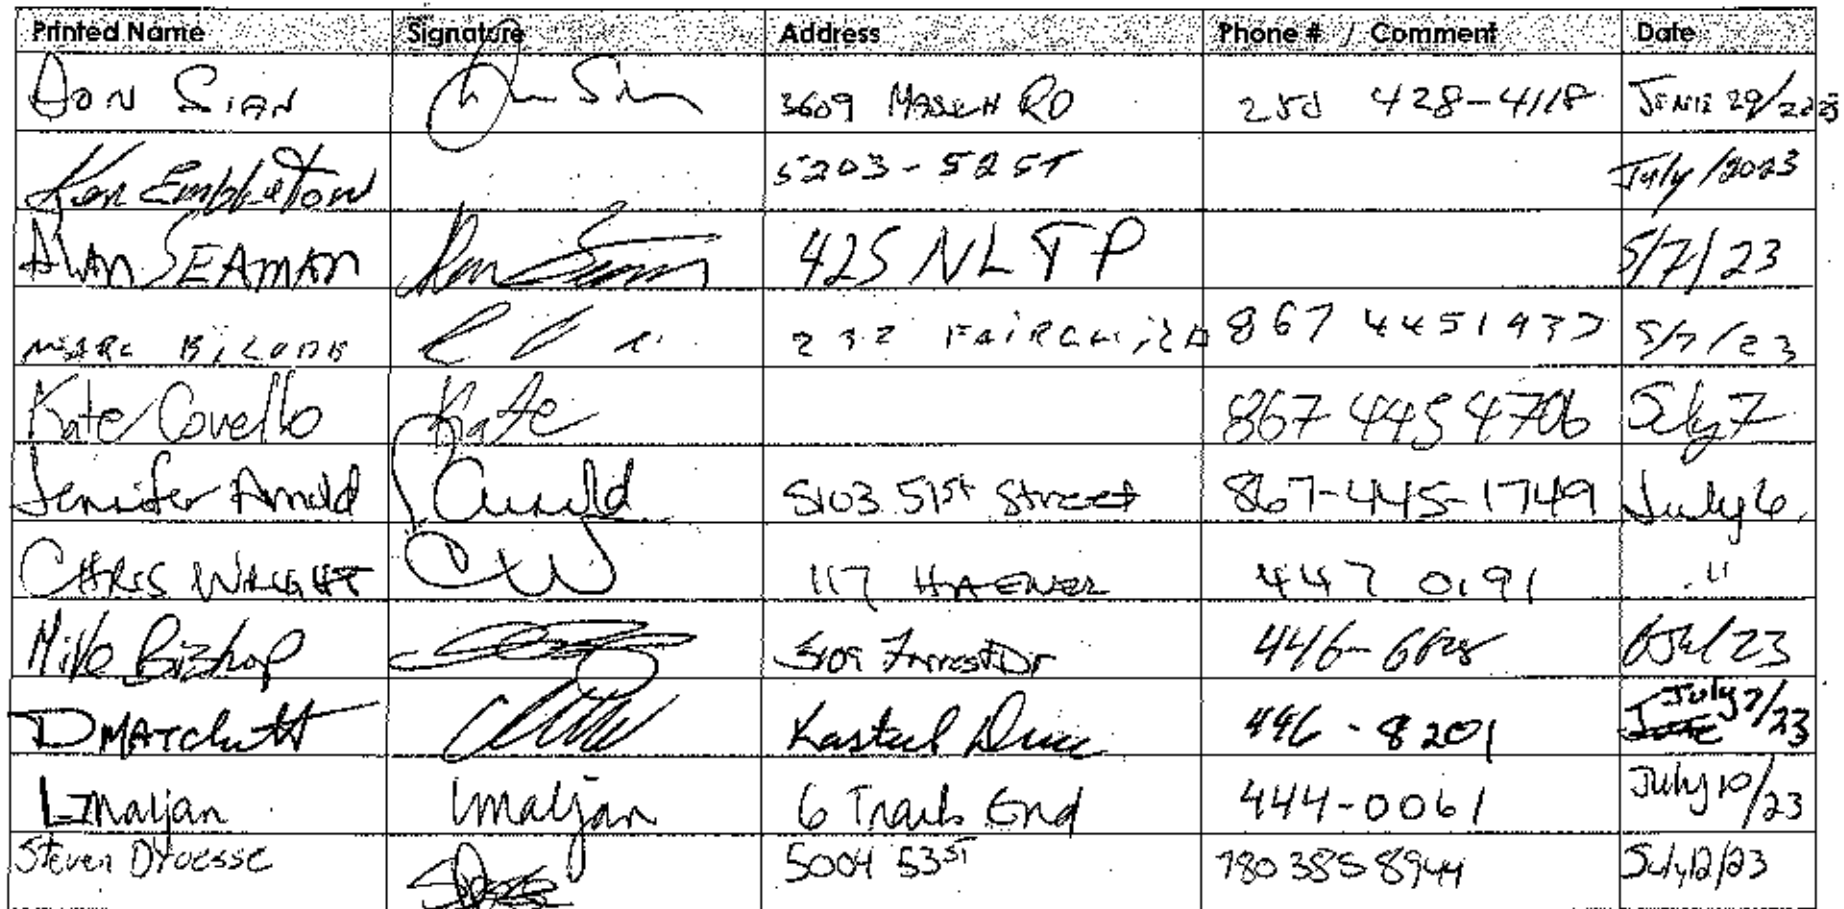 Printed Name Signature Address Phone # / Comment Date
DON SIAN 3609 RD 250 428-4118 29/2023
Ken Embleton 5203-52 ST July/2023
Alan SEAMAN 425 NLTP 5/7/23
MARC 232 FAIRCHILD 867 445 1937 5/7/23
Kate Covello Kate 867 445 4706 July 7
Jennifer Arnold Arnold 5103 51st Street 867-445-1749 July 6
CHRIS WRIGHT CW 117 HAENER 447 0191 "
Mike Bishop 5109 Forrest Dr 446- 6 Jul/23
D MATCHETT Drive 446-8201 July 7/23
L Maljan LMaljan 6 Trails End 444-0061 July 10/23
Steven Droesse 5004 53 ST 780 385 8944 July 12/23